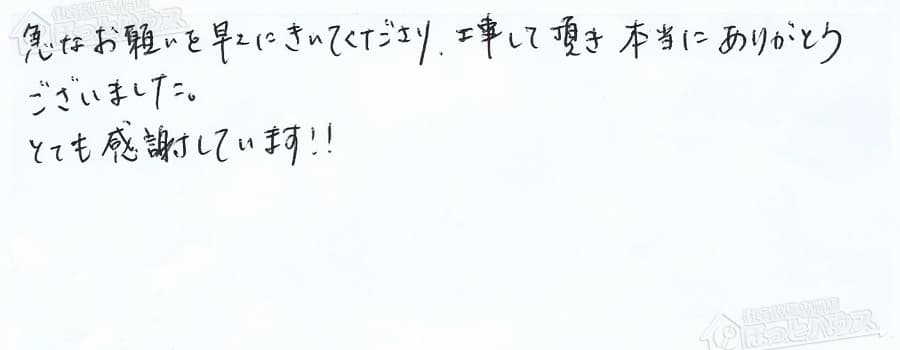 急なお願いを早々にきいてくださり、工事して頂き 本当にありがとう
ございました。
とても感謝しています!!
ほっとハウス